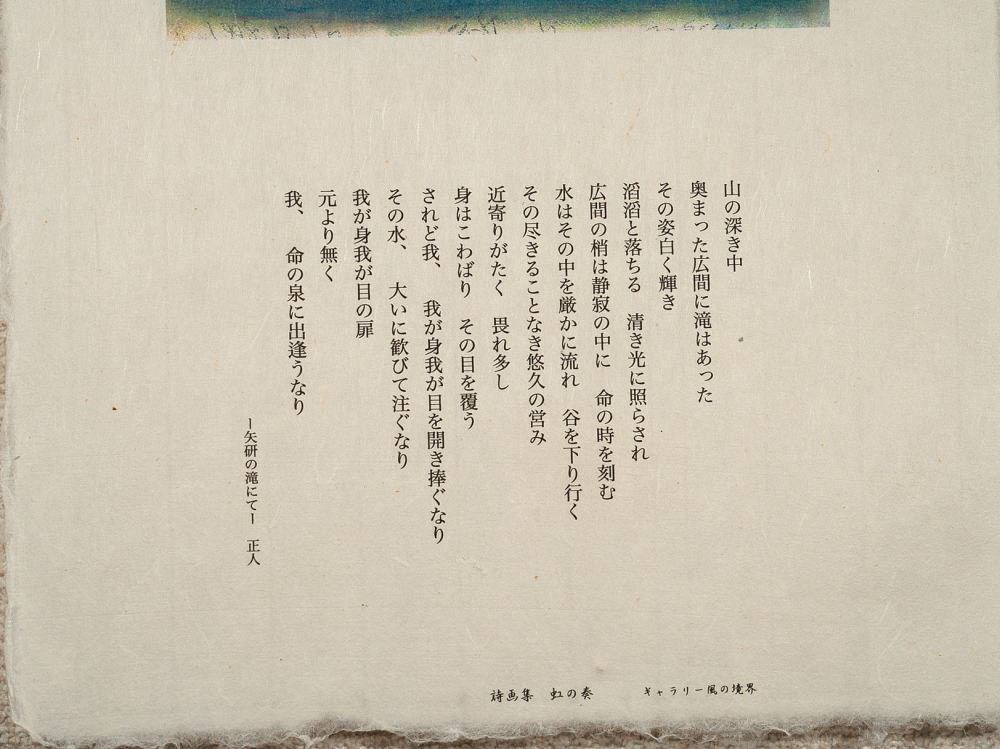 山の深き中
奥まった広間に滝はあった
その姿白く輝き
滔滔と落ちる　清き光に照らされ
広間の梢は静寂の中に　命の時を刻む
水はその中を厳かに流れ　谷を下り行く
その尽きることなき悠久の営み
近寄りがたく　畏れ多し
身はこわばり　その目を覆う
されど我、　我が身我が目を開き捧ぐなり
その水、　大いに歓びて注ぐなり
我が身我が目の扉
元より無く
我、　命の泉に出逢うなり
ー矢研の滝にてー　正人
詩画集　虹の奏　ギャラリー風の境界